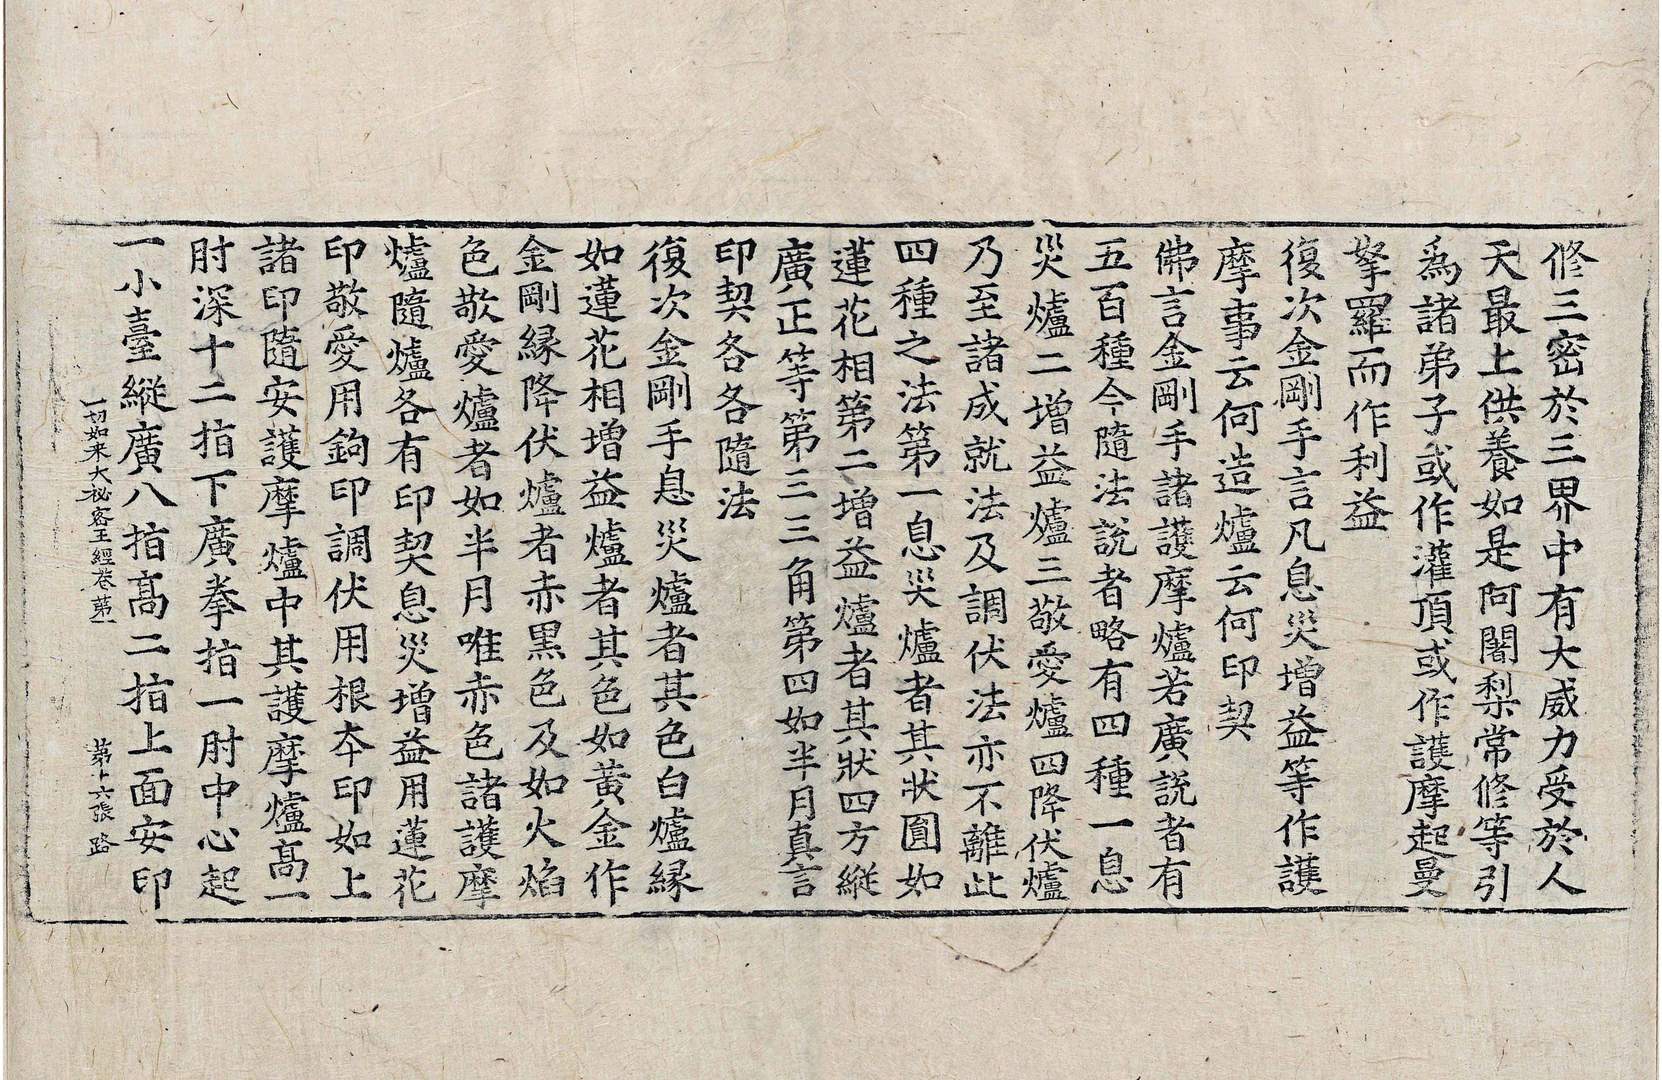 修三密於三界中有大威力受於人
天最上供養如是阿闍梨常修等引
爲諸弟子或作灌頂或作護摩起曼
拏羅而作利益
復次金剛手言凡息災增益等作護
摩事云何造爐云何印契
佛言金剛手諸護摩爐若廣說者有
五百種今隨法說者略有四種一息
災爐二增益爐三敬愛爐四降伏爐
乃至諸成就法及調伏法亦不離此
四種之法第一息災爐者其狀圓如
蓮花相第二增益爐者其狀四方縱
廣正等第三三角第四如半月真言
印契各各隨法
復次金剛手息災爐者其色白爐緣
如蓮花相增益爐者其色如黃金作
金剛緣降伏爐者赤黑色及如火焰
色敬愛爐者如半月唯赤色諸護摩
爐隨爐各有印契息災增益用蓮花
印敬愛用鉤印調伏用根夲印如上
諸印隨安護摩爐中其護摩爐高一
肘深十二指下廣拳指一肘中心起
一小臺縱廣八指高二指上面安印
一切如来大祕密王經卷第一 第十六張 路